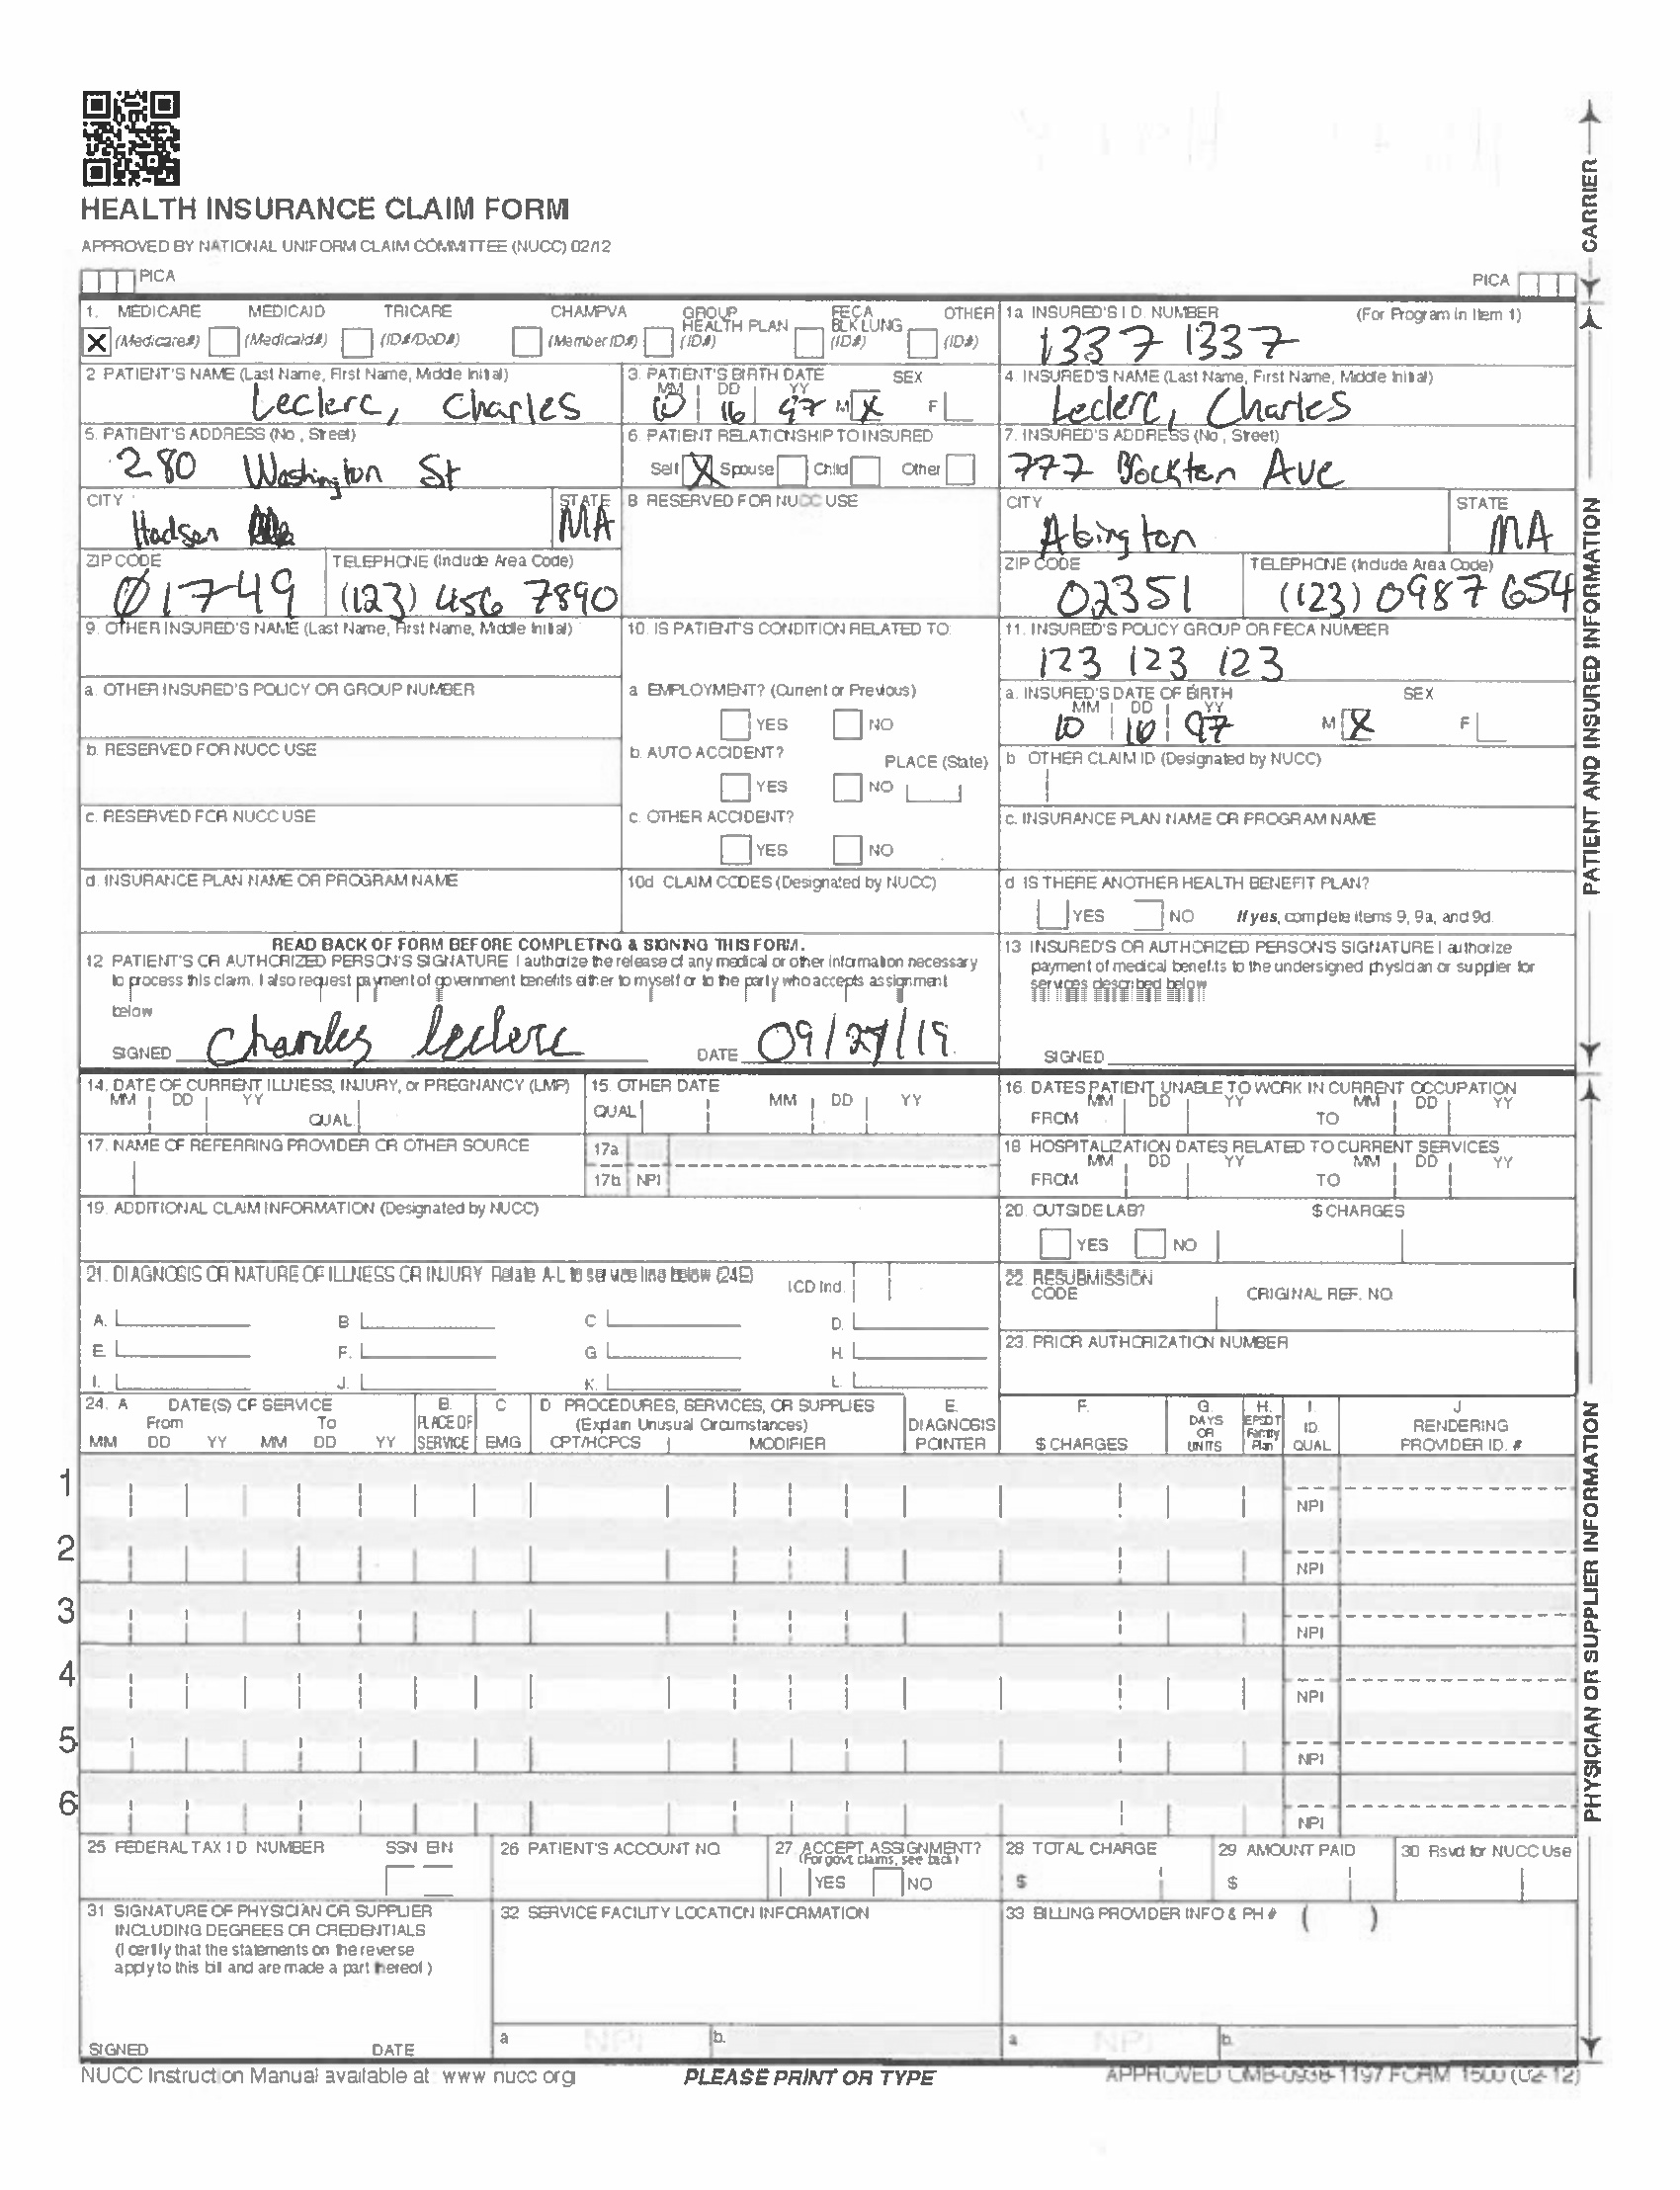 HEALTH INSURANCE CLAIM FORM
APPROVED BY NATIONAL UNIFORM CLAIM COMMITTEE (NUCC) 02/12
PICA PICA
CARRIER
1. MEDICARE MEDICAID TRICARE CHAMPVA GROUP HEALTH PLAN FECA BLK LUNG OTHER
X (Medicare#) (Medicaid#) (ID#/DoD#) (Member ID#) (ID#) (ID#) (ID#)
1a INSURED'S I.D. NUMBER (For Program in Item 1)
1337 1337
2 PATIENT'S NAME (Last Name, First Name, Middle Initial)
Leclerc, Charles
3. PATIENT'S BIRTH DATE SEX
MM DD YY
10 16 97 M X F
4. INSURED'S NAME (Last Name, First Name, Middle Initial)
Leclerc, Charles
5. PATIENT'S ADDRESS (No., Street)
280 Washington St
6. PATIENT RELATIONSHIP TO INSURED
Self X Spouse Child Other
7. INSURED'S ADDRESS (No., Street)
777 Brockton Ave
CITY STATE
Hudson MA
8 RESERVED FOR NUCC USE
CITY STATE
Abington MA
ZIP CODE TELEPHONE (Include Area Code)
01749 (123) 456 7890
ZIP CODE TELEPHONE (Include Area Code)
02351 (123) 0987 654
9. OTHER INSURED'S NAME (Last Name, First Name, Middle Initial)
10. IS PATIENT'S CONDITION RELATED TO:
11. INSURED'S POLICY GROUP OR FECA NUMBER
123 123 123
a. OTHER INSURED'S POLICY OR GROUP NUMBER
a EMPLOYMENT? (Current or Previous)
YES NO
a. INSURED'S DATE OF BIRTH SEX
MM DD YY
10 16 97 M X F
b. RESERVED FOR NUCC USE
b. AUTO ACCIDENT? PLACE (State)
YES NO
b OTHER CLAIM ID (Designated by NUCC)
c. RESERVED FOR NUCC USE
c. OTHER ACCIDENT?
YES NO
c. INSURANCE PLAN NAME OR PROGRAM NAME
d. INSURANCE PLAN NAME OR PROGRAM NAME
10d CLAIM CODES (Designated by NUCC)
d IS THERE ANOTHER HEALTH BENEFIT PLAN?
YES NO If yes, complete items 9, 9a, and 9d.
READ BACK OF FORM BEFORE COMPLETING & SIGNING THIS FORM.
12 PATIENT'S OR AUTHORIZED PERSON'S SIGNATURE I authorize the release of any medical or other information necessary
to process this claim. I also request payment of government benefits either to myself or to the party who accepts assignment
below
SIGNED Charles Leclerc DATE 09/27/19
13 INSURED'S OR AUTHORIZED PERSON'S SIGNATURE I authorize
payment of medical benefits to the undersigned physician or supplier for
services described below
SIGNED
PATIENT AND INSURED INFORMATION
14. DATE OF CURRENT ILLNESS, INJURY, or PREGNANCY (LMP)
MM DD YY
QUAL
15. OTHER DATE
QUAL MM DD YY
16. DATES PATIENT UNABLE TO WORK IN CURRENT OCCUPATION
MM DD YY MM DD YY
FROM TO
17. NAME OF REFERRING PROVIDER OR OTHER SOURCE
17a
17b NPI
18 HOSPITALIZATION DATES RELATED TO CURRENT SERVICES
MM DD YY MM DD YY
FROM TO
19. ADDITIONAL CLAIM INFORMATION (Designated by NUCC)
20. OUTSIDE LAB? $ CHARGES
YES NO
21. DIAGNOSIS OR NATURE OF ILLNESS OR INJURY Relate A-L to service line below (24E) ICD Ind.
A. B C D.
E. F. G H.
I. J. K. L.
22. RESUBMISSION CODE ORIGINAL REF. NO.
23. PRIOR AUTHORIZATION NUMBER
24. A DATE(S) OF SERVICE B. C D PROCEDURES, SERVICES, OR SUPPLIES E. F. G. H. I. J
From To PLACE OF (Explain Unusual Circumstances) DIAGNOSIS DAYS OR EPSDT Family ID. RENDERING
MM DD YY MM DD YY SERVICE EMG CPT/HCPCS MODIFIER POINTER $ CHARGES UNITS Plan QUAL PROVIDER ID. #
1 NPI
2 NPI
3 NPI
4 NPI
5 NPI
6 NPI
25 FEDERAL TAX I D NUMBER SSN EIN
26 PATIENT'S ACCOUNT NO.
27 ACCEPT ASSIGNMENT?
(For govt. claims, see back)
YES NO
28 TOTAL CHARGE
$
29 AMOUNT PAID
$
30 Rsvd for NUCC Use
31 SIGNATURE OF PHYSICIAN OR SUPPLIER
INCLUDING DEGREES OR CREDENTIALS
(I certify that the statements on the reverse
apply to this bill and are made a part thereof.)
SIGNED DATE
32 SERVICE FACILITY LOCATION INFORMATION
a NPI b.
33 BILLING PROVIDER INFO & PH # ( )
a NPI b.
PHYSICIAN OR SUPPLIER INFORMATION
NUCC Instruction Manual available at: www nucc org
PLEASE PRINT OR TYPE
APPROVED OMB-0938-1197 FORM 1500 (02-12)